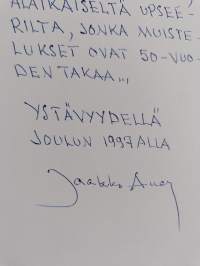 ALAIKÄISELTÄ UPSEE-
RILTA, JONKA MUISTE-
LUKSET OVAT 50-VUO-
DEN TAKAA...
YSTÄVYYDELLÄ
JOULUN 1997 ALLA
Jaakko